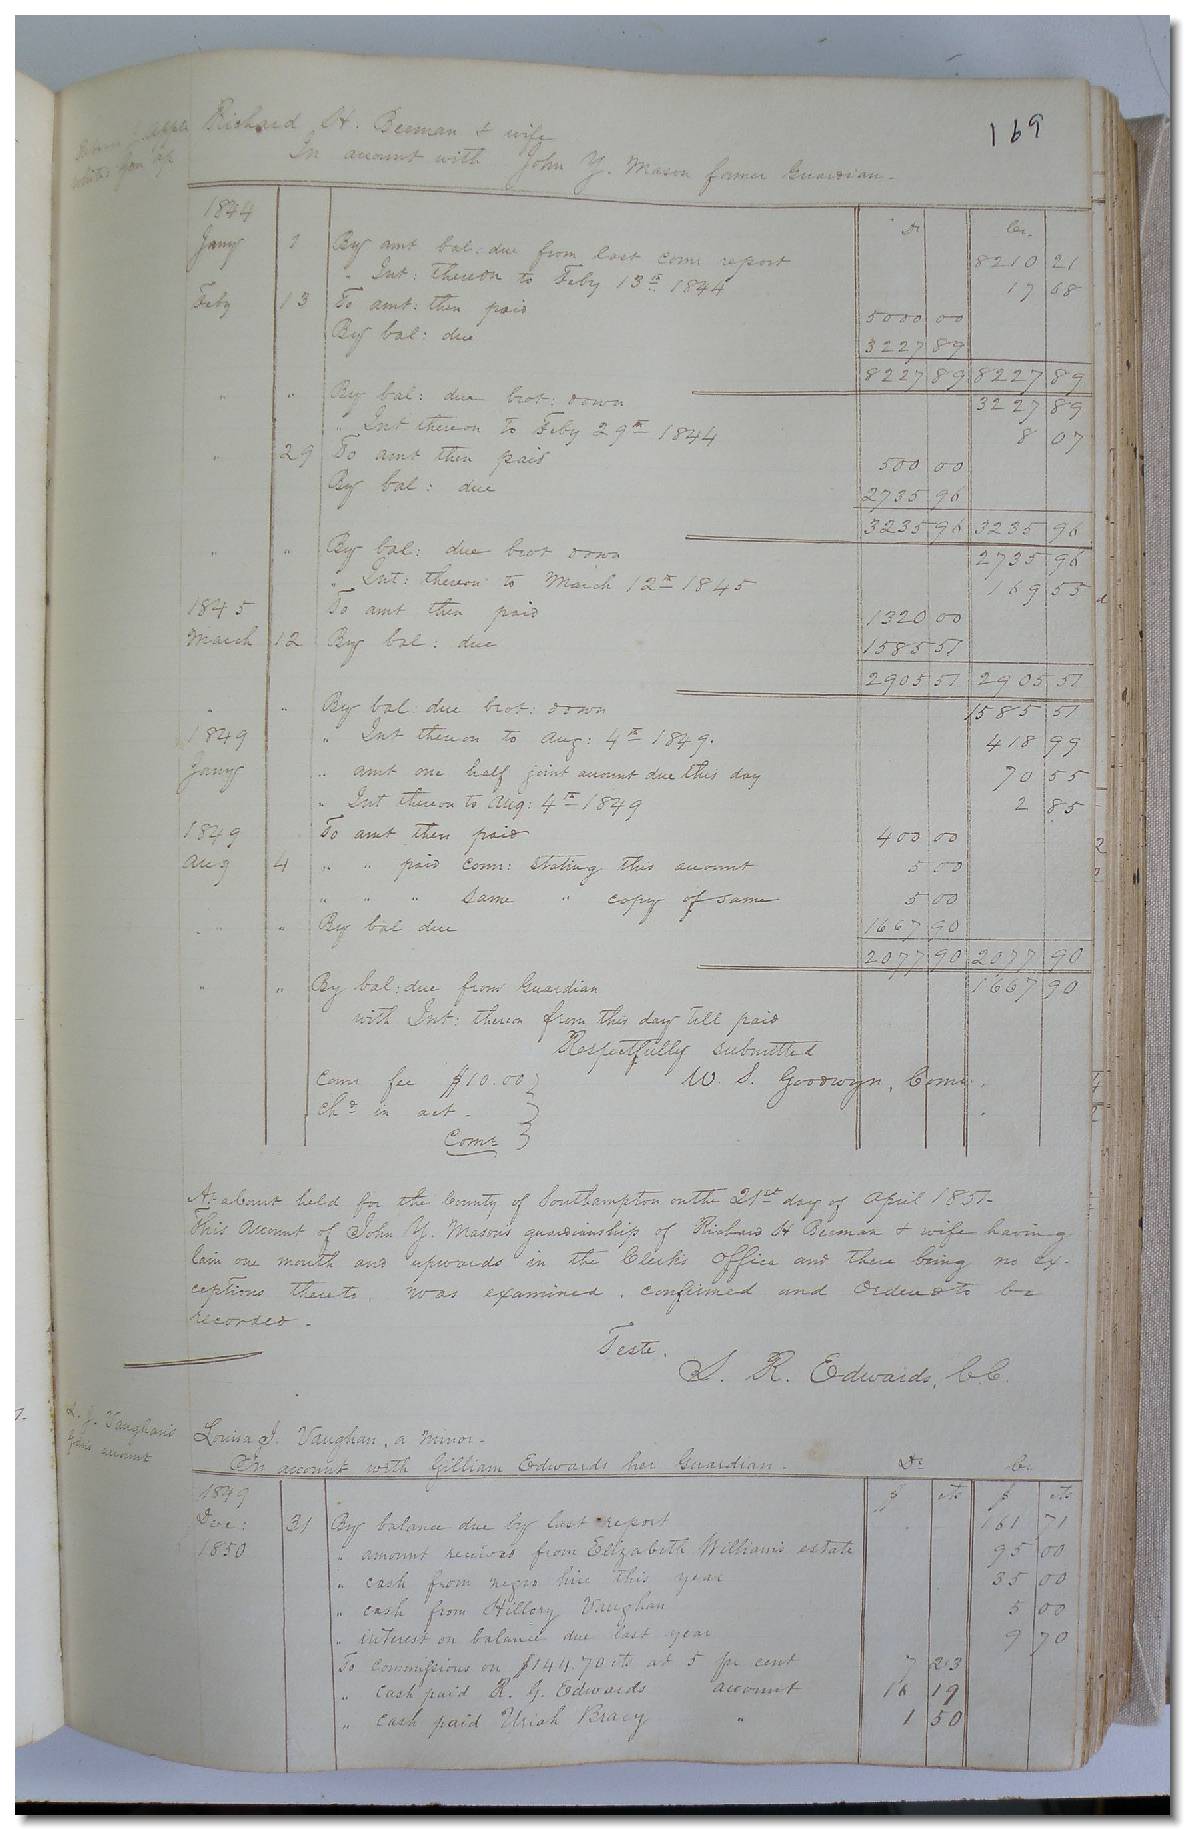 169
Richard H. Beeman & wife
In account with John Y. Mason former Guardian.
Dr Cr.
1844
Jany 1 By amt bal: due from last comr report 8210 21
" Int: thereon to Feby 13th 1844 17 68
Feby 13 To amt: then paid 5000 00
By bal: due 3227 89
8227 89 8227 89
" " By bal: due brot: down 3227 89
" Int thereon to Feby 29th 1844 8 07
" 29 To amt then paid 500 00
By bal: due 2735 96
3235 96 3235 96
" " By bal: due brot down 2735 96
" Int: thereon to March 12th 1845 169 55
1845 To amt then paid 1320 00
March 12 By bal: due 1585 51
2905 51 2905 51
" " By bal: due brot: down 1585 51
1849 " Int thereon to Aug: 4th 1849. 418 99
Jany " amt one half joint amount due this day 70 55
" Int thereon to Aug: 4th 1849 2 85
1849 To amt then paid 400 00
Aug 4 " " paid comr: stating this account 5 00
" " " Same " copy of same 5 00
" " By bal due 1667 90
2077 90 2077 90
" " By bal: due from Guardian 1667 90
with Int: thereon from this day till paid
Respectfully submitted
Comr fee $10.00 } W. S. Goodwyn, Comr.
chd in act. }
Comr }
At a Court held for the County of Southampton on the 21st day of April 1851-
This Account of John Y. Masons guardianship of Richard H Beeman & wife having
lain one month and upwards in the Clerks Office and there being no ex-
ceptions thereto. was examined. confirmed and Ordered to be
recorded.
Teste.
S. R. Edwards, C.C.
L. J. Vaughan's
Gdns account
Louisa J. Vaughan, a minor-
In account with Gilliam Edwards her Guardian. Dr Cr
1849 $ cts $ cts
Dec: 31 By balance due by last report 161 71
1850 " amount received from Elizabeth Williams estate 95 00
" cash from negro hire this year 35 00
" cash from Hillory Vaughan 5 00
" interest on balance due last year 9 70
To commissions on $144.70 cts at 5 pr cent 7 23
" cash paid R. G. Edwards account 16 19
" cash paid Uriah Bracy " 1 50